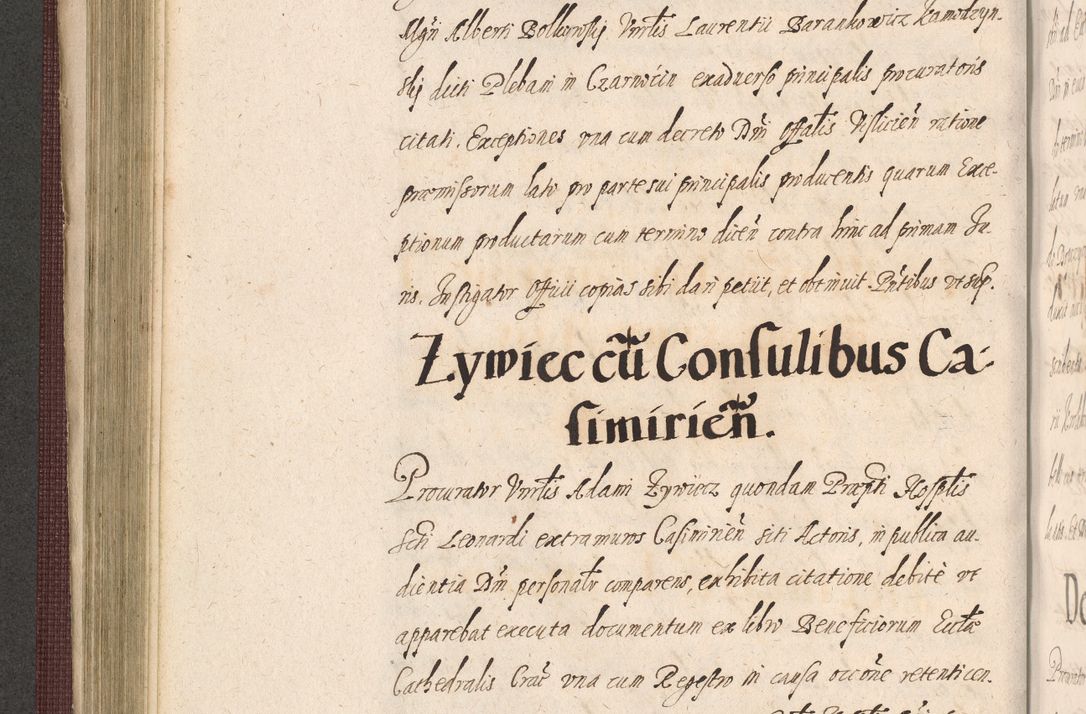 Mgri Alberti Bolkowskj Vnrtis Laurentii Barankowicz kamodzyn-
skj dicti Plebani in Czarnocin exaduerso principalis procuratoris
citati. Exceptiones vna cum decreto Dni Offalis Vislicien ratione
præmissorum lato pro parte sui principalis producentis quarum Exce-
ptionum productarum cum termino dicen contra hinc ad primam Ju-
ris. Instigator Officii copias sibi dari petiit, et obtinuit. Pntibus vt sup.
Zywiec cũ Consulibus Ca-
simirien.
Procurator Vnrtis Adami Zywiecz quondam Præpti Hosptlis
Scti Leonardi extra muros Casimirien siti Actoris, in publica au-
dientia Dni personalr comparens, exhibita citatione debitè vt
apparebat executa documentum ex libro Beneficiorum Ecclæ
Cathedralis Crac vna cum Regestro in causa occone retenti cen-